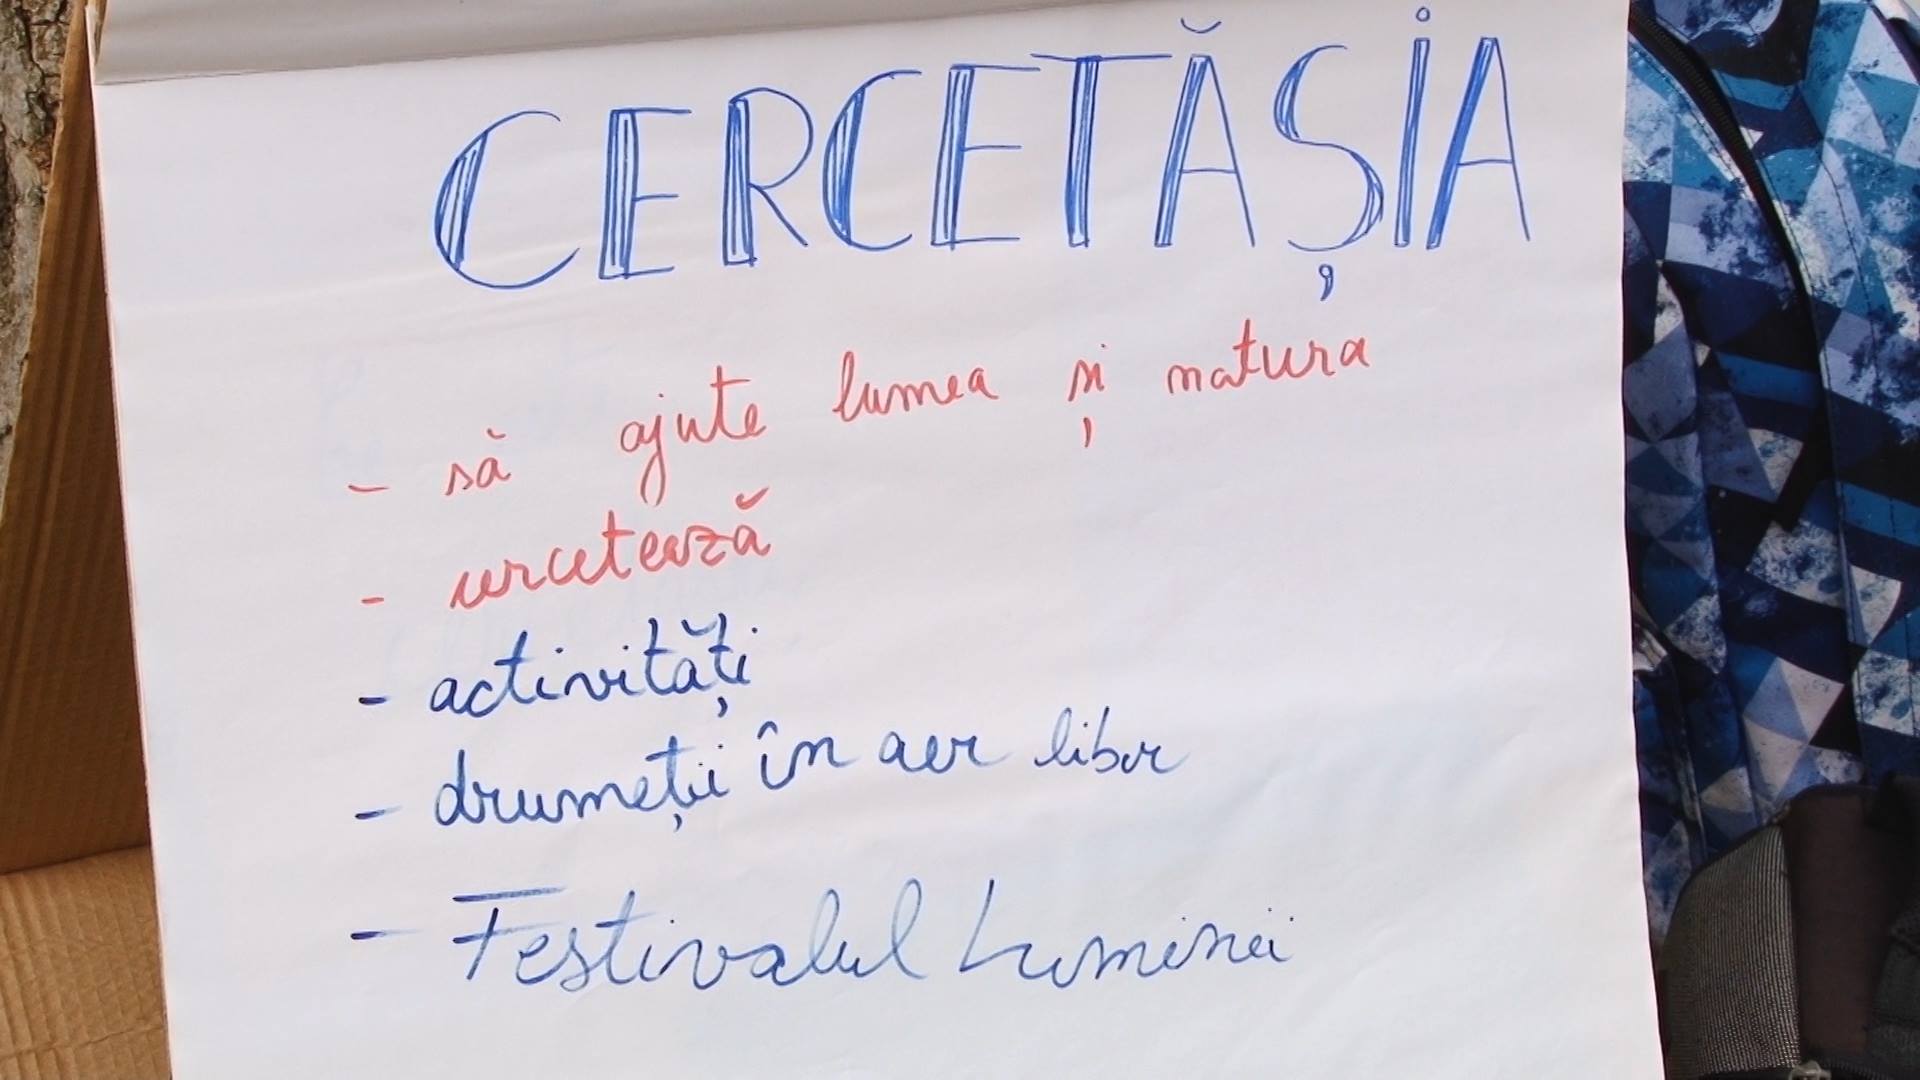 CERCETĂȘIA
- să ajute lumea și natura
- cercetează
- activități
- drumeții în aer liber
- Festivalul Luminii